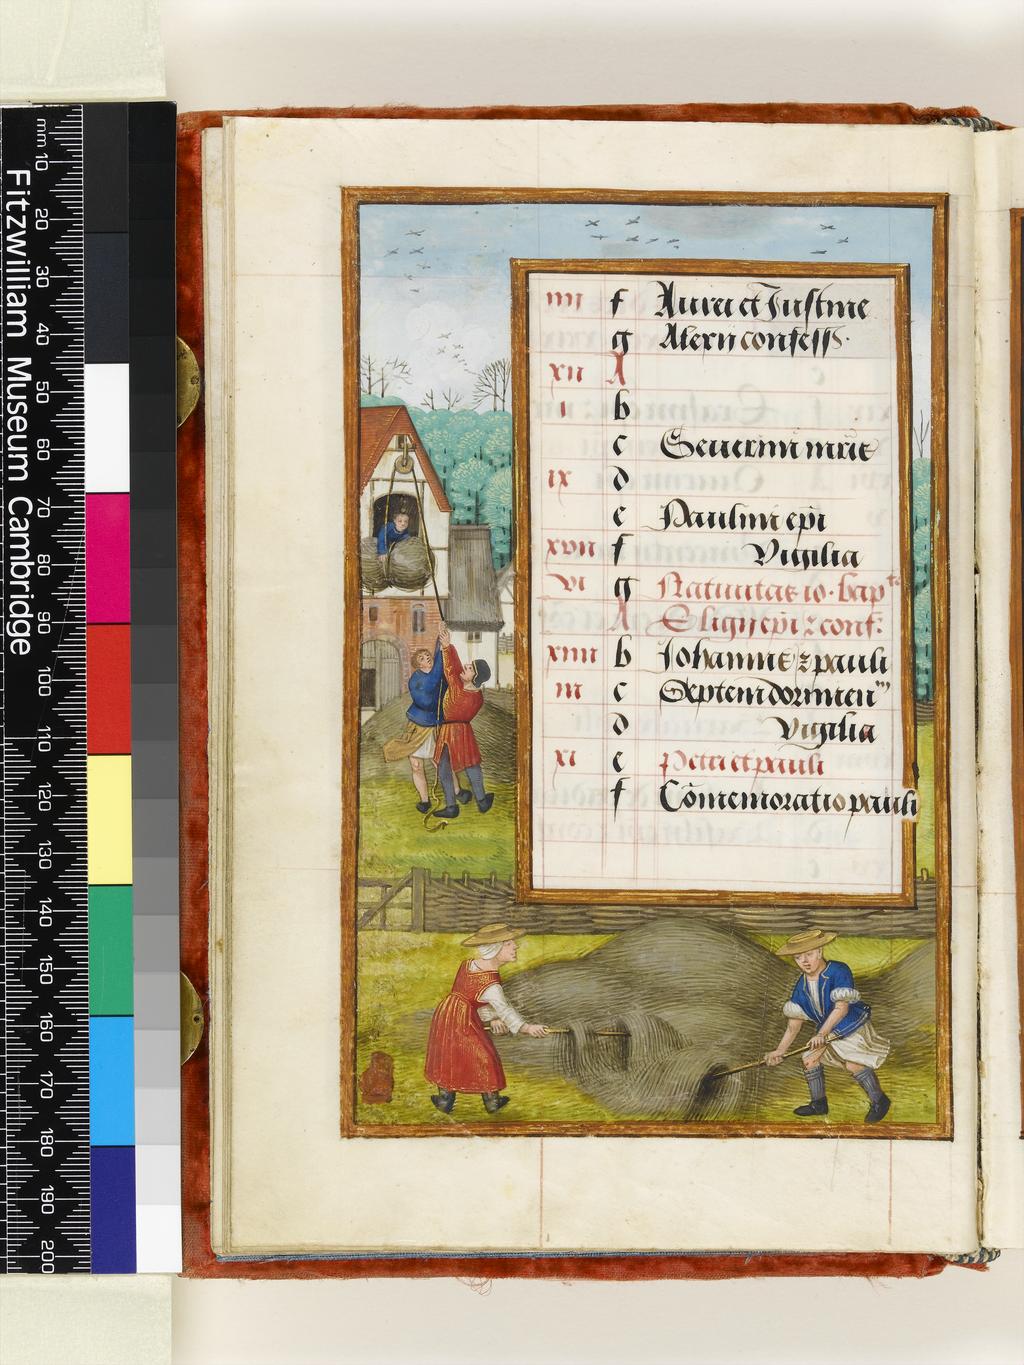 Fitzwilliam Museum Cambridge
mm 10 20 30 40 50 60 70 80 90 100 110 120 130 140 150 160 170 180 190 200
iiii f Aurei et Justine
g Alexii confess.
xii A
i b
c Seuerini mris
ix d
e Paulini epi
xvii f Vigilia
vi g Natiuitas io. bapte
A Eligii epi z conf:
xiiii b Johannis z pauli
iii c Septem dormien
d Vigilia
xi e Petri et pauli
f Cōmemoratio pauli